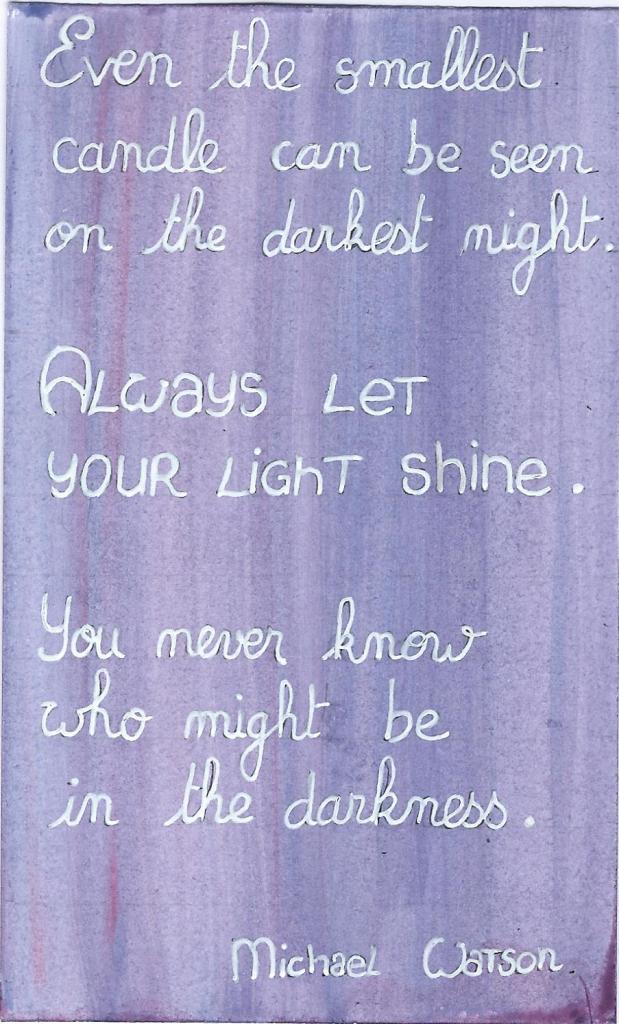 Even the smallest
candle can be seen
on the darkest night.
Always Let
your Light shine.
You never know
who might be
in the darkness.
Michael Watson.